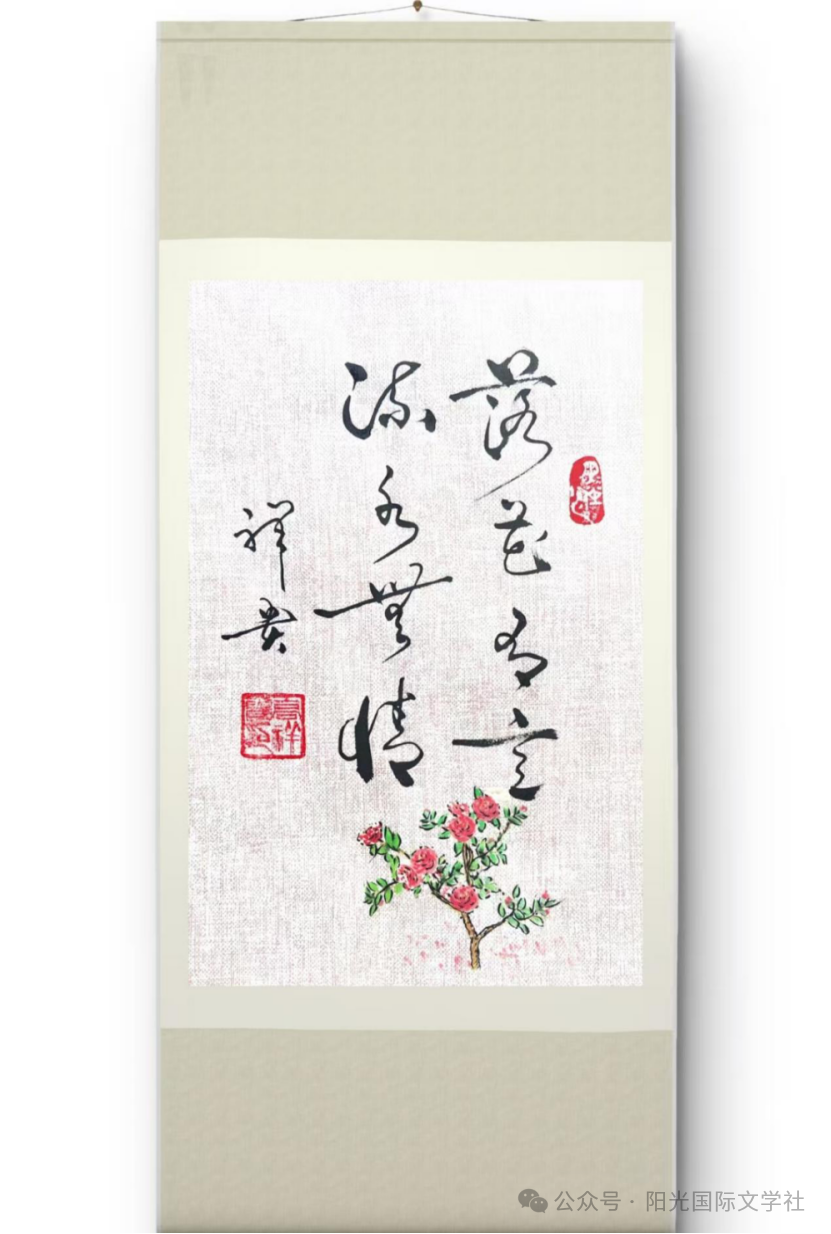 落花有言
流水無情
祥贵
公众号 · 阳光国际文学社